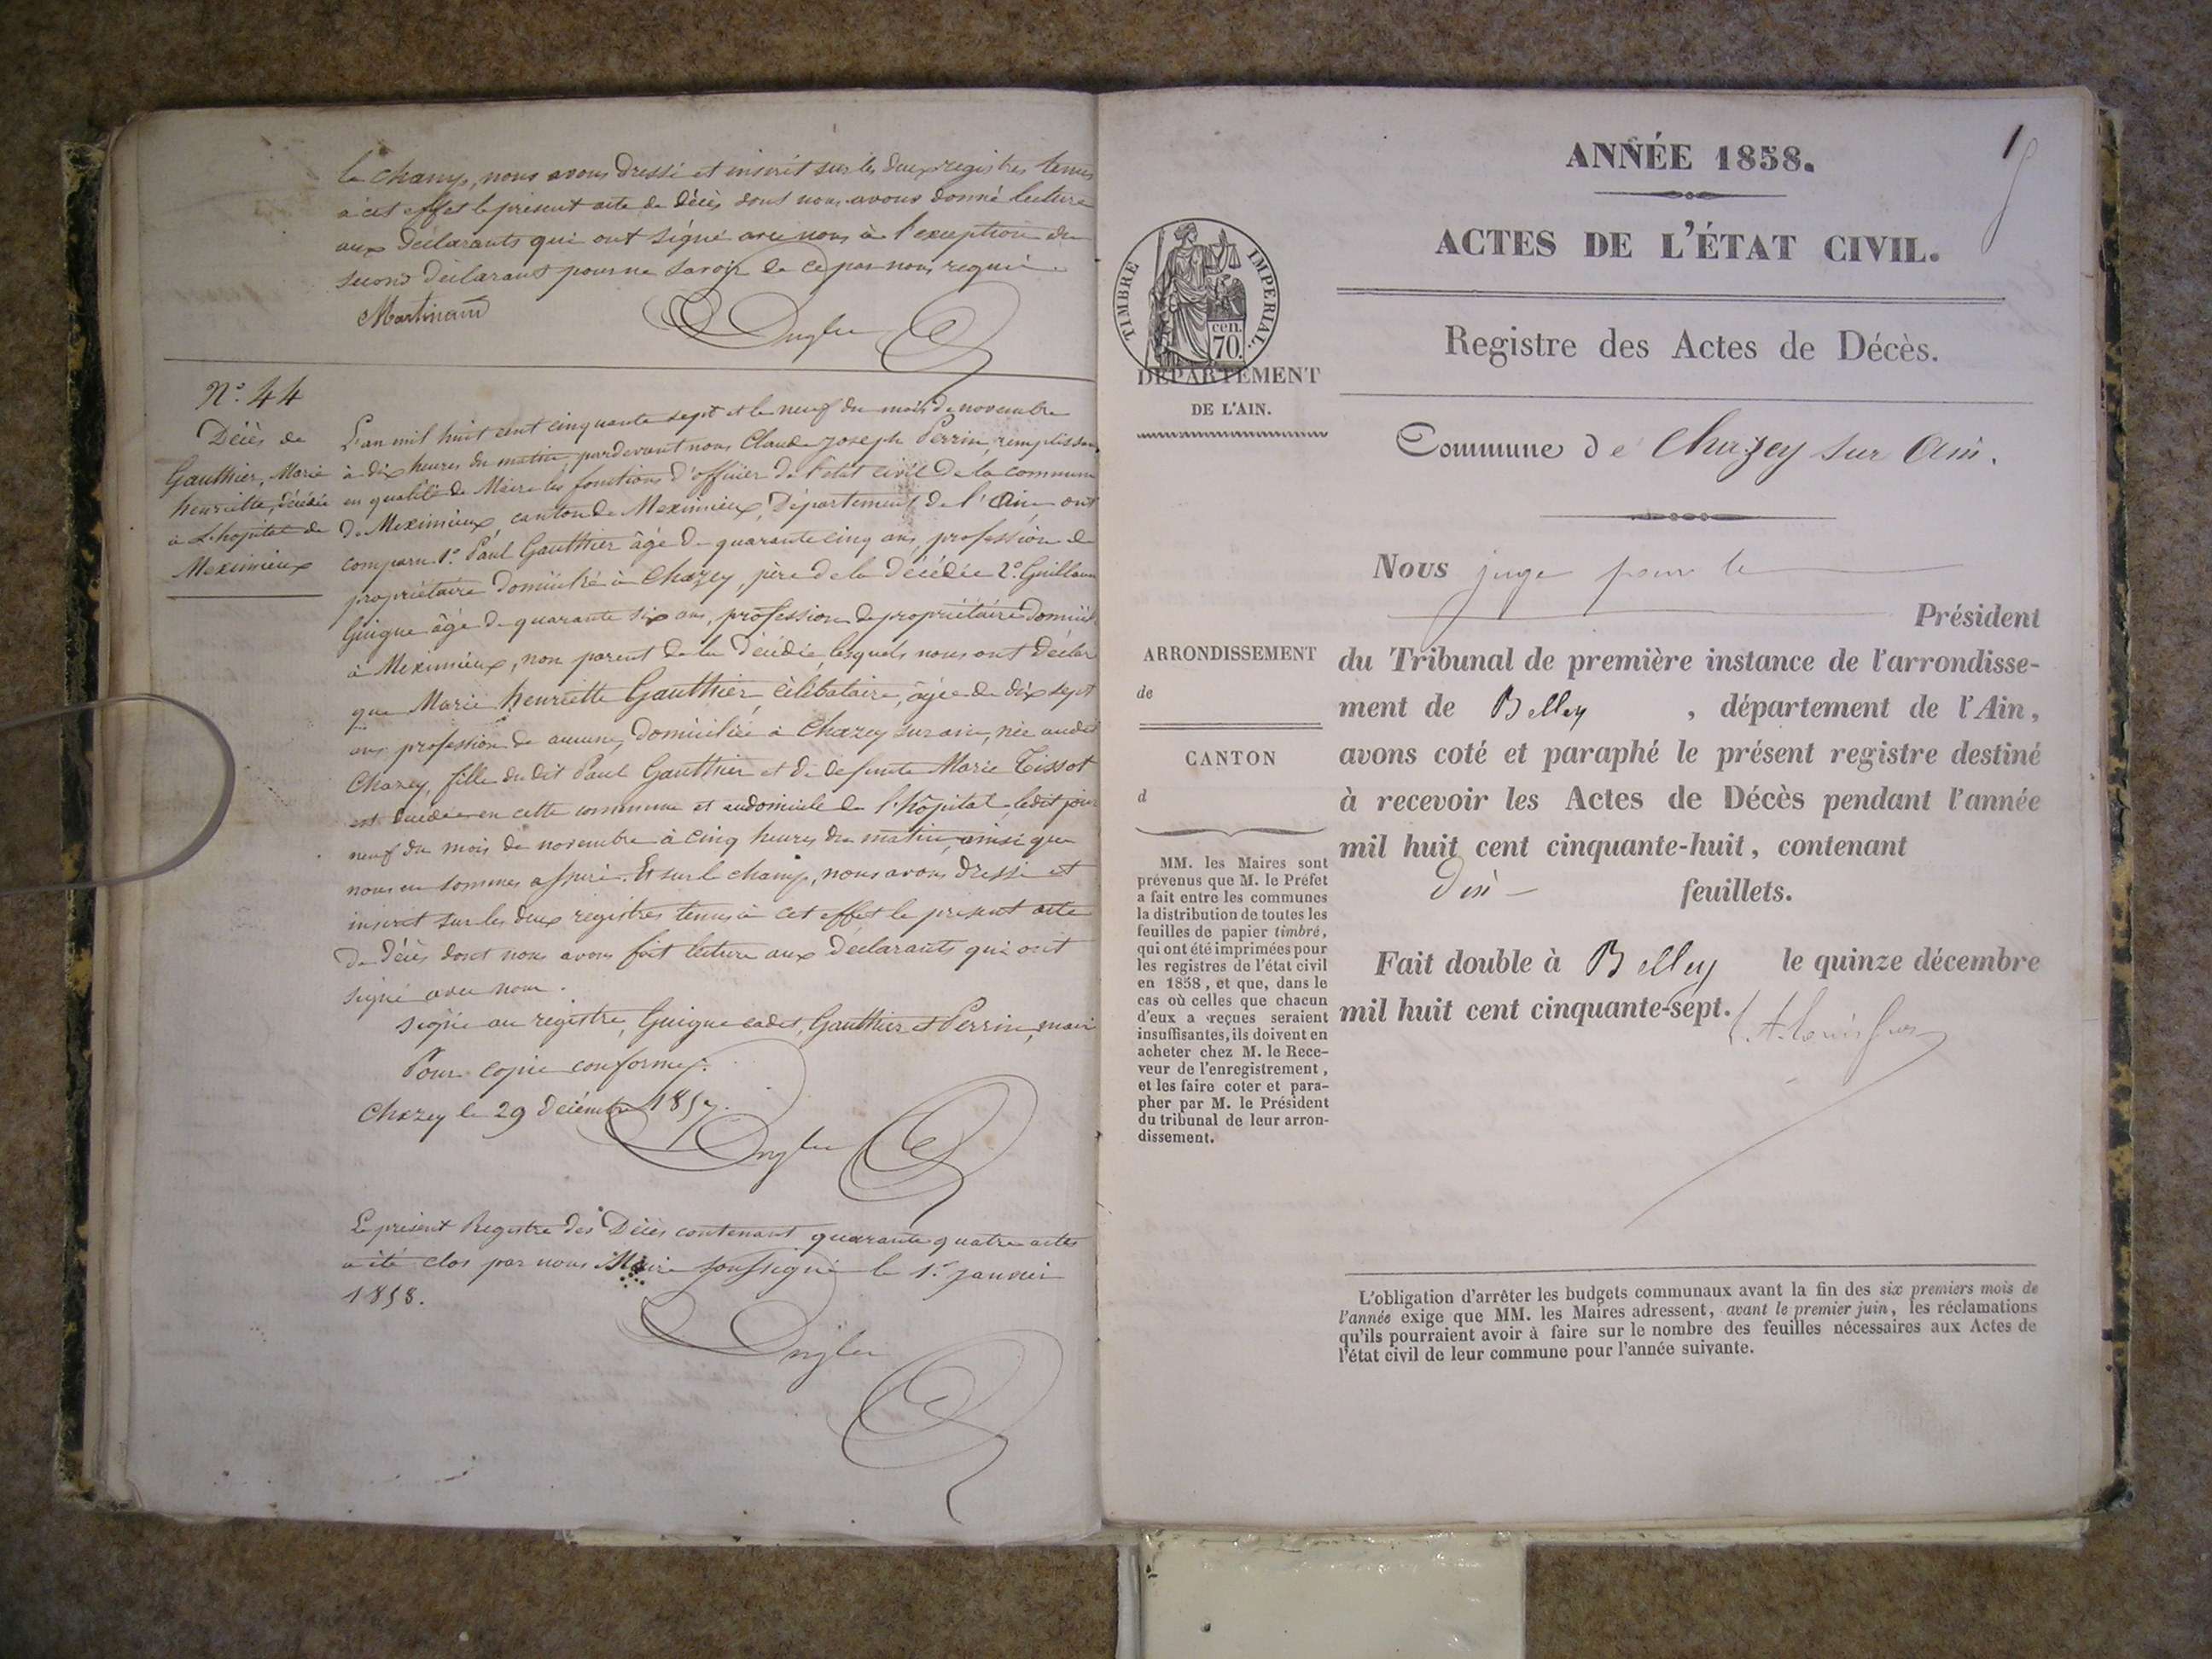 le champ, nous avons dressé et inscrit sur les deux registres tenus
à cet effet le présent acte de décès dont nous avons donné lecture
aux déclarants qui ont signé avec nous à l'exception du
second déclarant pour ne savoir de ce par nous requis
Martinand
N.° 44
Décès de
Gauthier, Marie
henriette, décédée
à L'hopital de
Meximieux
L'an mil huit cent cinquante sept et le neuf du mois de novembre
à dix heures du matin pardevant nous Claude Joseph Perrin, remplissant
en qualité de Maire les fonctions d'officier de l'état civil de la commune
de Meximieux, canton de Meximieux, Département de l'Ain ont
comparu 1.° Paul Gauthier âgé de quarante cinq ans, profession de
propriétaire domicilié à Chazey, père de la décédée 2.° Guillaume
Guigue âgé de quarante six ans, profession de propriétaire domicilié
à Meximieux, non parent de la décédée, lesquels nous ont déclaré
que Marie henriette Gauthier, célibataire, âgée de dix sept
ans profession de aucune, domiciliée à Chazey sur ain, née audit
Chazey, fille du dit Paul Gauthier et de defunte Marie Tissot
est decédée en cette commune et au domicile de l'hôpital ledit jour
neuf du mois de novembre à cinq heures du matin, ainsi que
nous en sommes assuré. Et sur le champ, nous avons dressé et
inscrit sur les deux registres tenus à cet effet le présent acte
de décès dont nous avons fait lecture aux déclarants qui ont
signé avec nous.
Signé au registre, Guigue cadet, Gauthier et Perrin, maire
Pour copie conforme.
Chazey le 29 décembre 1857.
Le présent Registre des Décès contenant quarante quatre actes
a été clos par nous Maire soussigné le 1.er janvier
1858.
1
ANNÉE 1858.
ACTES DE L'ÉTAT CIVIL.
TIMBRE IMPERIAL.
cen.
70.
Registre des Actes de Décès.
DÉPARTEMENT
DE L'AIN.
Commune de Chazey sur Ain.
Nous juge pour le
Président
ARRONDISSEMENT
de
CANTON
d
du Tribunal de première instance de l'arrondisse-
ment de Belley , département de l'Ain,
avons coté et paraphé le présent registre destiné
à recevoir les Actes de Décès pendant l'année
mil huit cent cinquante-huit, contenant
dix feuillets.
Fait double à Belley le quinze décembre
mil huit cent cinquante-sept.
MM. les Maires sont
prévenus que M. le Préfet
a fait entre les communes
la distribution de toutes les
feuilles de papier timbré,
qui ont été imprimées pour
les registres de l'état civil
en 1858, et que, dans le
cas où celles que chacun
d'eux a reçues seraient
insuffisantes, ils doivent en
acheter chez M. le Rece-
veur de l'enregistrement,
et les faire coter et para-
pher par M. le Président
du tribunal de leur arron-
dissement.
L'obligation d'arrêter les budgets communaux avant la fin des six premiers mois de
l'année exige que MM. les Maires adressent, avant le premier juin, les réclamations
qu'ils pourraient avoir à faire sur le nombre des feuilles nécessaires aux Actes de
l'état civil de leur commune pour l'année suivante.